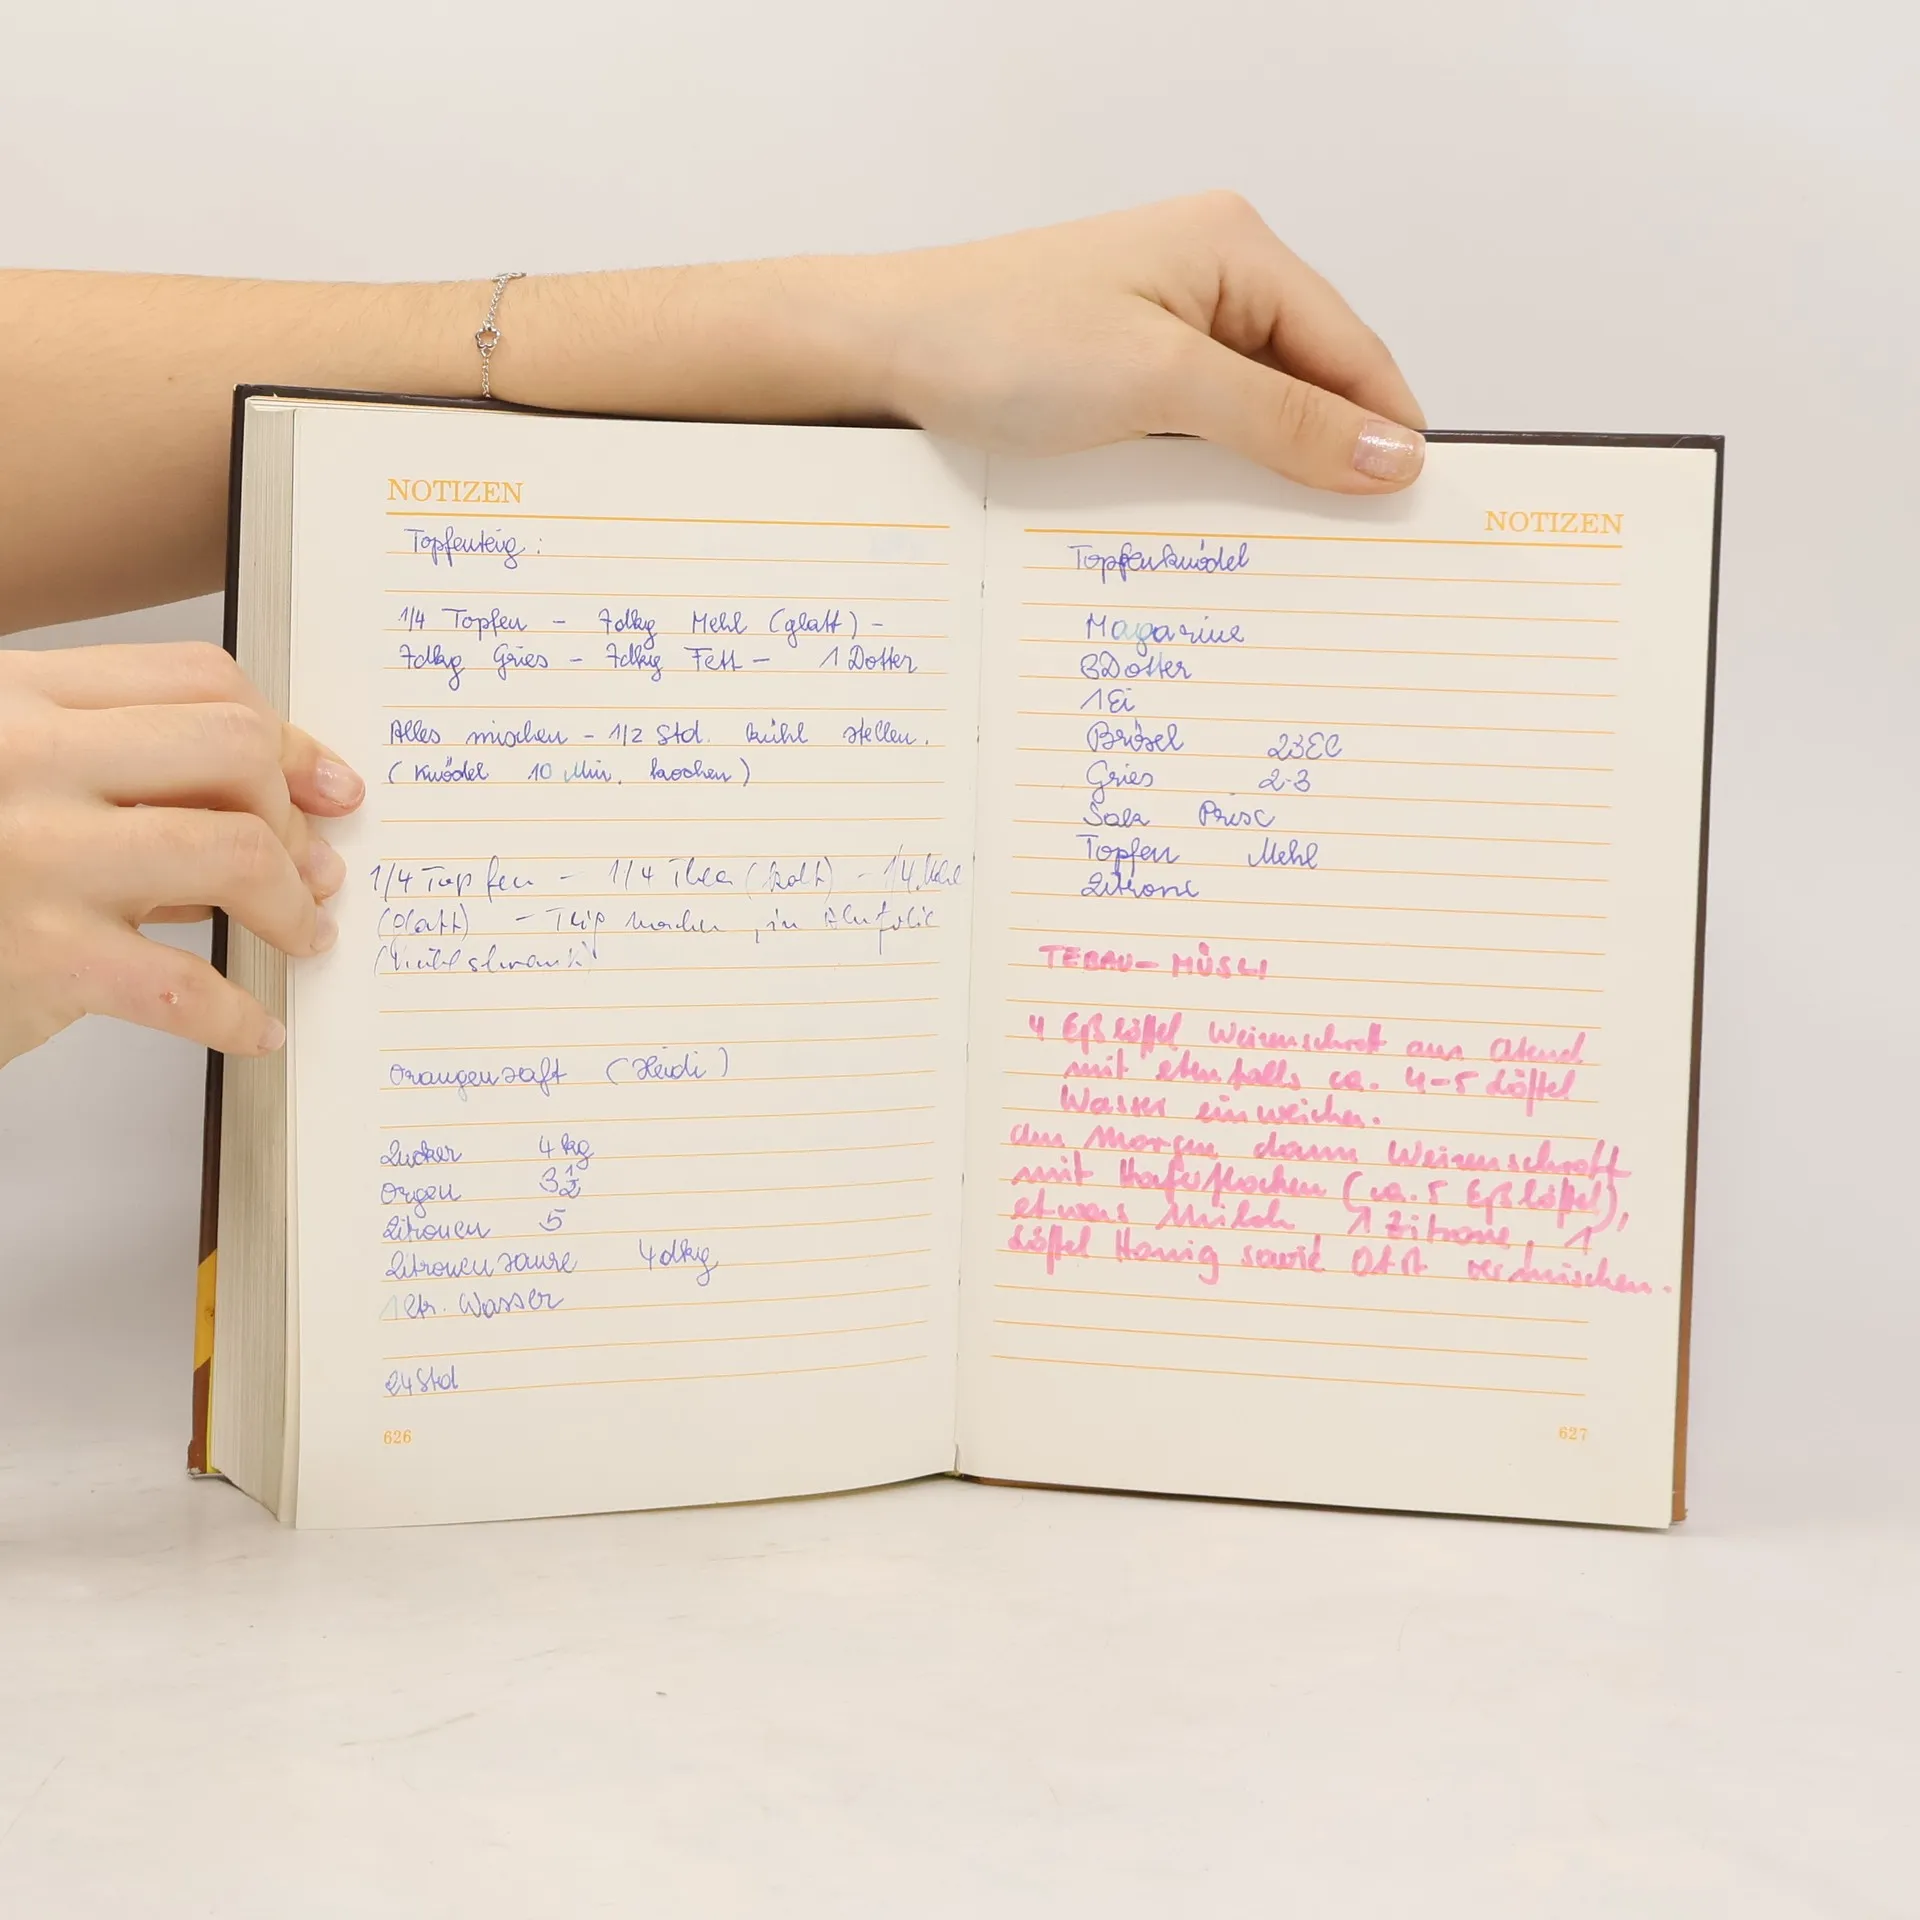 NOTIZEN
Topfenteig :
1/4 Topfen - 7dkg Mehl (glatt) -
7dkg Gries - 7dkg Fett - 1 Dotter
Alles mischen - 1/2 Std. kühl stellen.
(Knödel 10 Min. kochen)
1/4 Topfen - 1/4 Thea (kalt) - 1/4 Mehl
(glatt) - machen, in Alufolie
(Kühlschrank)
Orangensaft (Heidi)
Zucker 4 kg
Orgen 3 1/2
Zitronen 5
Zitronensaure 4dkg
1 ltr. Wasser
24 Std
626
NOTIZEN
Topfenknödel
Magarine
3Dotter
1Ei
Brösel
Gries 2-3
Salz Prise
Topfen Mehl
Zitrone
MÜSLI
4 Eßlöffel Weizenschrott am Abend
mit ebenfalls ca. 4-5 Löffel
Wasser einweichen.
Am Morgen dann Weizenschrott
mit Haferflocken (ca. 5 Eßlöffel),
etwas Milch 1 Zitrone, 1
Löffel Honig sowie Obst vermischen.
627